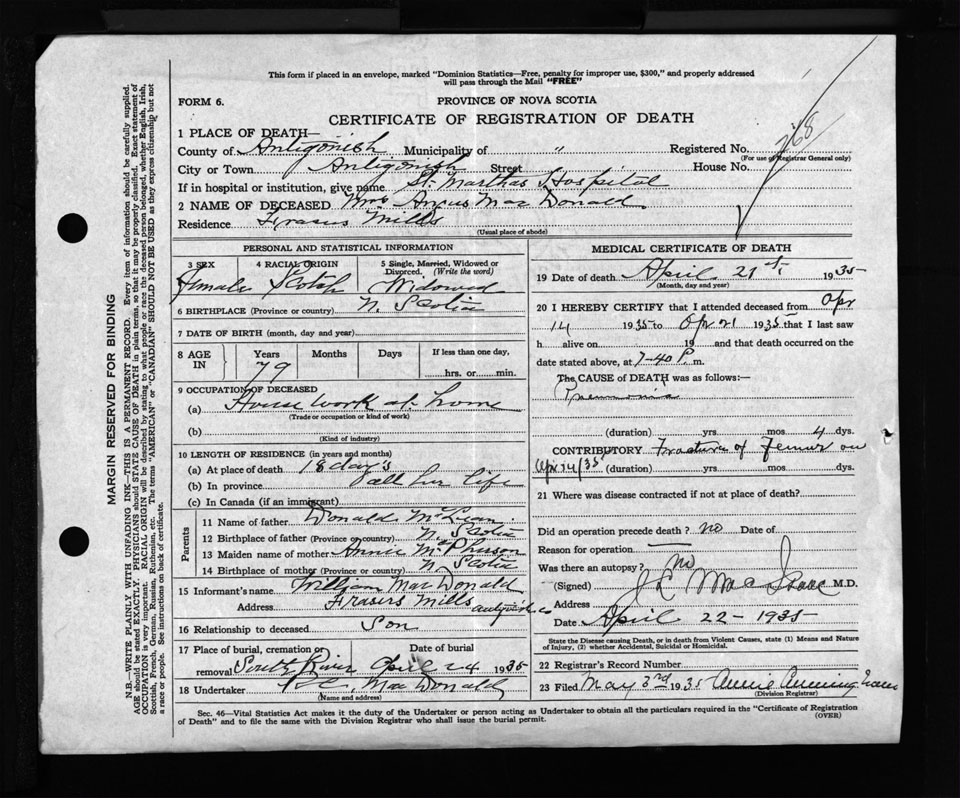 This form if placed in an envelope, marked "Dominion Statistics—Free, penalty for improper use, $300," and properly addressed
will pass through the Mail "FREE"
FORM 6.
PROVINCE OF NOVA SCOTIA
CERTIFICATE OF REGISTRATION OF DEATH
1 PLACE OF DEATH—
County of Antigonish Municipality of " Registered No.
(For use of Registrar General only)
768
City or Town Antigonish Street House No.
If in hospital or institution, give name St. Marthas Hospital
2 NAME OF DECEASED Mrs Angus MacDonald
Residence Frasers Mills
(Usual place of abode)
PERSONAL AND STATISTICAL INFORMATION
3 SEX 4 RACIAL ORIGIN 5 Single, Married, Widowed or
Divorced. (Write the word)
Female Scotch Widowed
6 BIRTHPLACE (Province or country) N. Scotia
7 DATE OF BIRTH (month, day and year)
8 AGE IN Years Months Days If less than one day,
79 hrs. or min.
9 OCCUPATION OF DECEASED
(a) House work at home
(Trade or occupation or kind of work)
(b)
(Kind of industry)
10 LENGTH OF RESIDENCE (in years and months)
(a) At place of death 18 days
(b) In province all her life
(c) In Canada (if an immigrant)
Parents
11 Name of father Donald McLean
12 Birthplace of father (Province or country) N. Scotia
13 Maiden name of mother Annie McPherson
14 Birthplace of mother (Province or country) N. Scotia
15 Informant's name William MacDonald
Address Frasers Mills Antigonish Co
16 Relationship to deceased Son
17 Place of burial, cremation or removal Date of burial
South River April 24 1935
18 Undertaker MacDonald
(Name and address)
MEDICAL CERTIFICATE OF DEATH
19 Date of death April 21st 1935
(Month, day and year)
20 I HEREBY CERTIFY that I attended deceased from Apr
14 1935 to Apr 21 1935 that I last saw
h alive on 19 and that death occurred on the
date stated above, at 7-40 P. m.
The CAUSE of DEATH was as follows:—
Pneumonia
(duration) yrs. mos. 4 dys.
CONTRIBUTORY Fracture of Femur on
Apr 14/35 (duration) yrs. mos. dys.
21 Where was disease contracted if not at place of death?
Did an operation precede death? no Date of
Reason for operation
Was there an autopsy? No
(Signed) MacIsaac M.D.
Address
Date April 22 - 1935
State the Disease causing Death, or in death from Violent Causes, state (1) Means and Nature
of Injury, (2) whether Accidental, Suicidal or Homicidal.
22 Registrar's Record Number
23 Filed May 3rd 1935 Annie
(Division Registrar)
Sec. 46—Vital Statistics Act makes it the duty of the Undertaker or person acting as Undertaker to obtain all the particulars required in the "Certificate of Registration
of Death" and to file the same with the Division Registrar who shall issue the burial permit.
(OVER)
MARGIN RESERVED FOR BINDING
N.B.—WRITE PLAINLY WITH UNFADING INK—THIS IS A PERMANENT RECORD. Every item of information should be carefully supplied.
AGE should be stated EXACTLY. PHYSICIANS should STATE CAUSE OF DEATH in plain terms, so that it may be properly classified. Exact statement of
OCCUPATION is very important. RACIAL ORIGIN will be described by stating to what people or race the deceased person belonged, whether English, Irish,
Scottish, French, German, Russian, Ruthenian, etc. The terms "AMERICAN" or "CANADIAN" SHOULD NOT BE USED as they express citizenship but not
a race or people. See instructions on back of certificate.